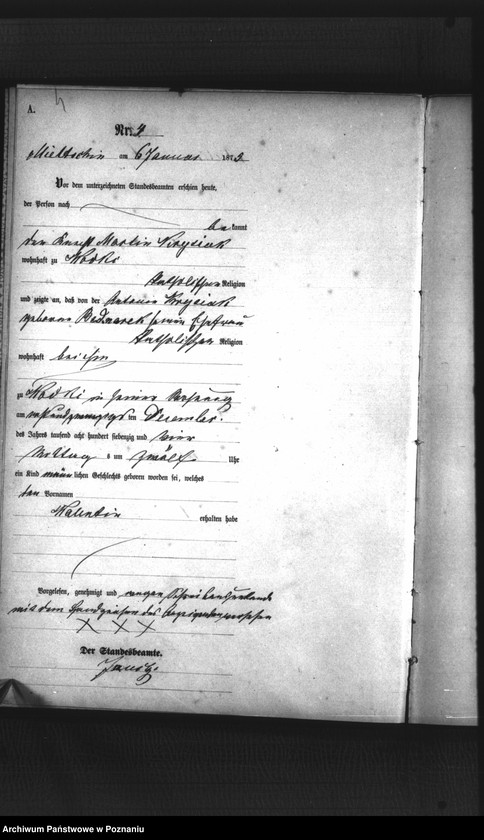 A.
Nr. 4
Miettschin am 6 Januar 1875
Vor dem unterzeichneten Standesbeamten erschien heute,
der Person nach
be kannt
der Knecht Martin Krysiak
wohnhaft zu
katholischer Religion
und zeigte an, daß von der Antonie Krysiak
geborene Bednarek seine Ehefrau
katholischer Religion
wohnhaft bei ihm
zu in seiner Wohnung
am ten Dezember
des Jahrs tausend acht hundert siebenzig und vier
Mittag s um zwölf Uhr
ein Kind männlichen Geschlechts geboren worden sei, welches
den Vornamen
Walentin
erhalten habe
Vorgelesen, genehmigt und wegen Schreibensunkunde
mit dem Handzeichen des versehen
X X X
Der Standesbeamte.
Archiwum Państwowe w Poznaniu